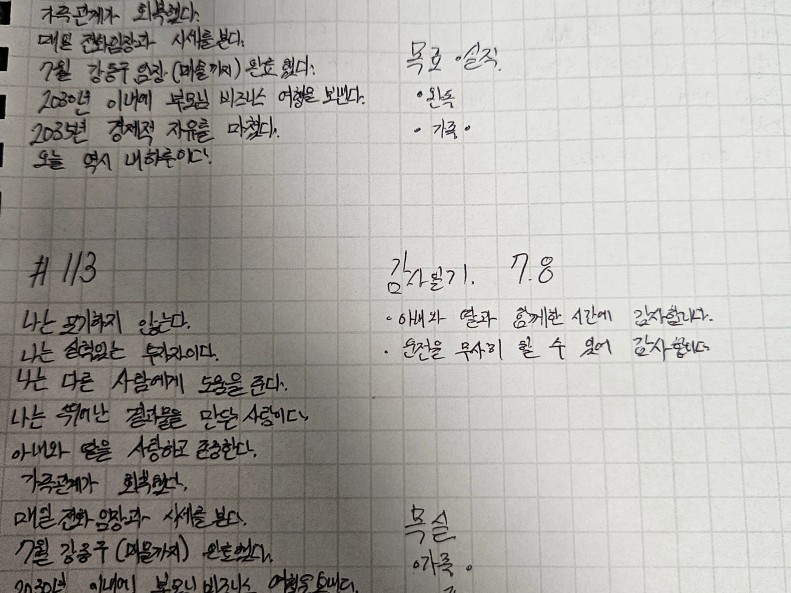 가족관계가 회복했다.
매일 전화임장과 시세를 본다.
7월 강동구 임장(매물까지) 완료했다.
2030년 이내에 부모님 비즈니스 여행을 보낸다.
2035년 경제적 자유를 마쳤다.
오늘 역시 내 하루이다.
목표·실적.
·완독
·가족·
#113
나는 포기하지 않는다.
나는 실력있는 투자자이다.
나는 다른 사람에게 도움을 준다.
나는 뛰어난 결과물을 만드는 사람이다.
아내와 딸을 사랑하고 존중한다.
가족관계가 회복했다.
매일 전화임장과 시세를 본다.
7월 강동구 (매물까지) 완료했다.
2030년 이내에 부모님 비즈니스 여행을 보낸다.
감사일기. 7.8
·아내와 딸과 함께한 시간에 감사합니다.
·운전을 무사히 할 수 있어 감사합니다
목실
·가족·